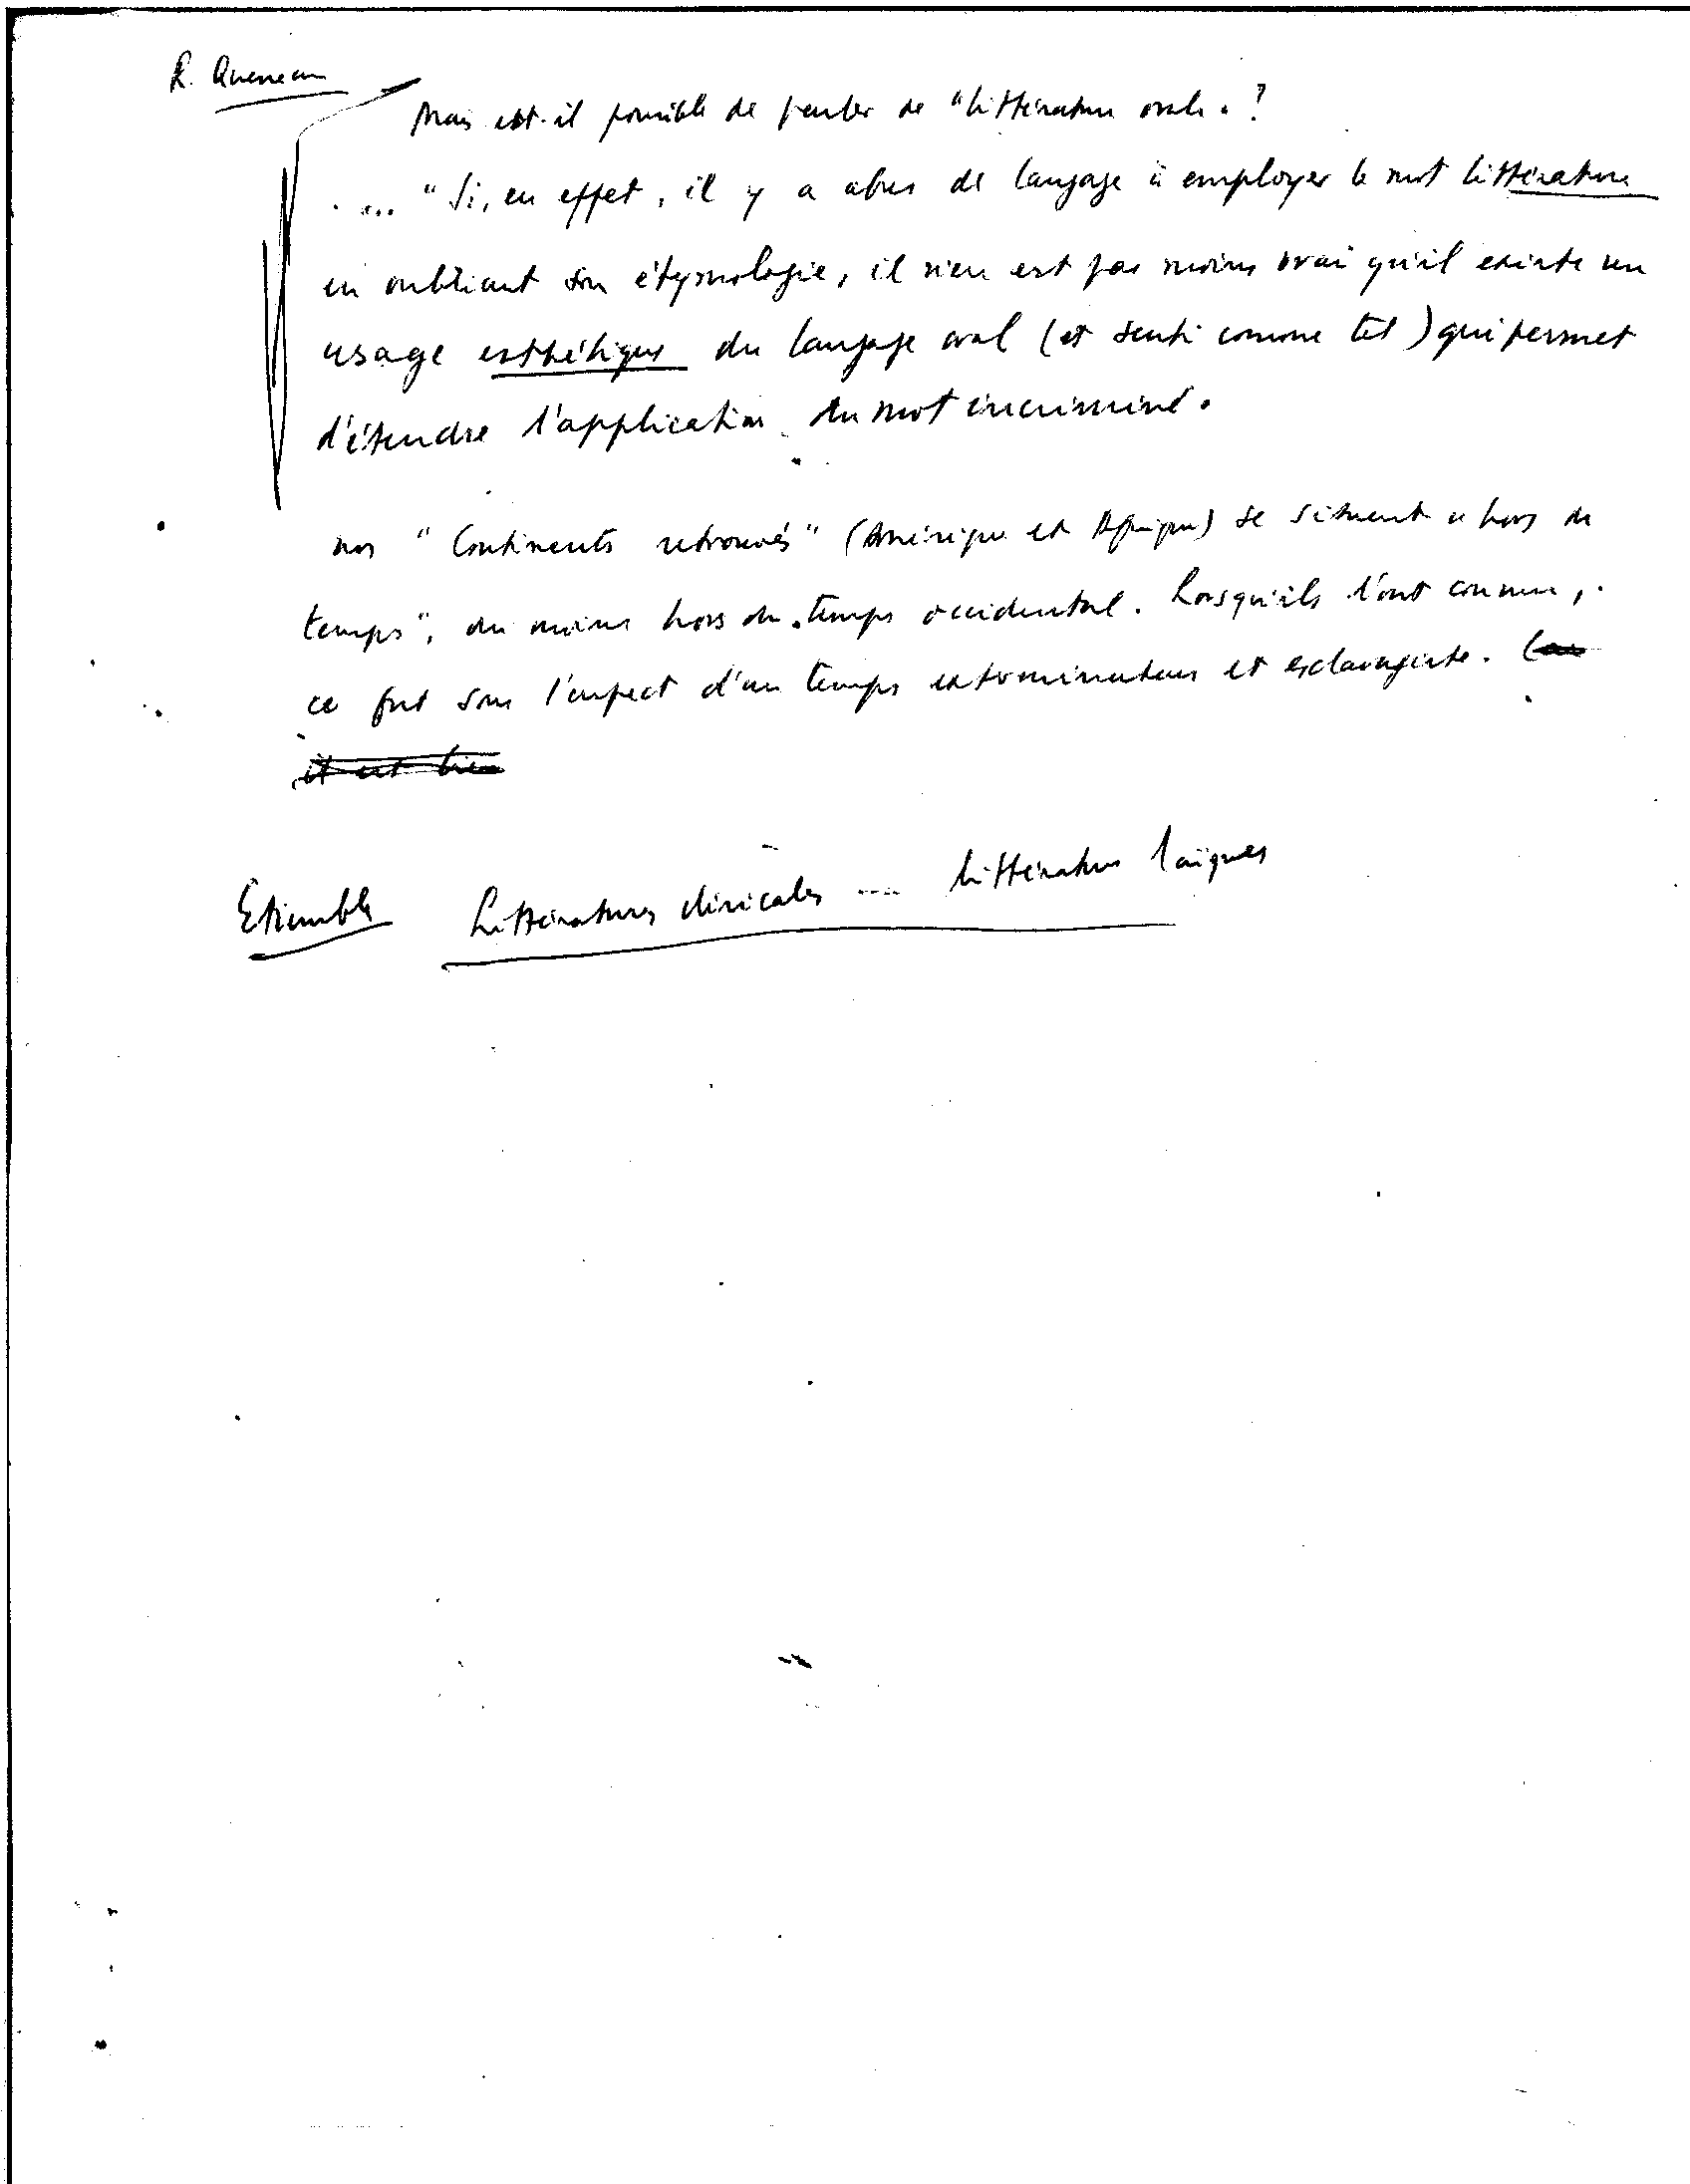 R. Queneau
Mais est-il possible de parler de "littérature orale" ?
... "Si, en effet, il y a abus de langage à employer le mot littérature
en oubliant son étymologie, il n'en est pas moins vrai qu'il existe un
usage esthétique du langage oral (et senti comme tel) qui permet
d'étendre l'application du mot incriminé.
nos "Continents retrouvés" (Amérique et Afrique) se situent "hors du
temps", du moins hors du temps occidental. Lorsqu'ils l'ont connu,
ce fut sous l'aspect d'un temps exterminateur et esclavagiste.
il est bien
Etiemble Littératures cléricales --- littératures laïques